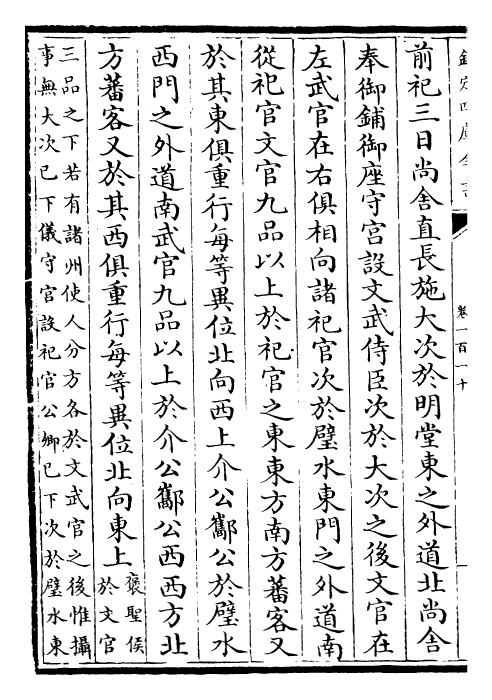 欽定四庫全書
卷一百一十
前祀三日尚舍直長施大次於明堂東之外道北尚舍
奉御鋪御座守宫設文武侍臣次於大次之後文官在
左武官在右俱相向諸祀官次於璧水東門之外道南
從祀官文官九品以上於祀官之東東方南方蕃客又
於其東俱重行每等異位北向西上介公酅公於璧水
西門之外道南武官九品以上於介公酅公西西方北
方蕃客又於其西俱重行每等異位北向東上褒聖侯
於文官
三品之下若有諸州使人分方各於文武官之後惟攝
事無大次已下儀守官設祀官公卿已下次於璧水東